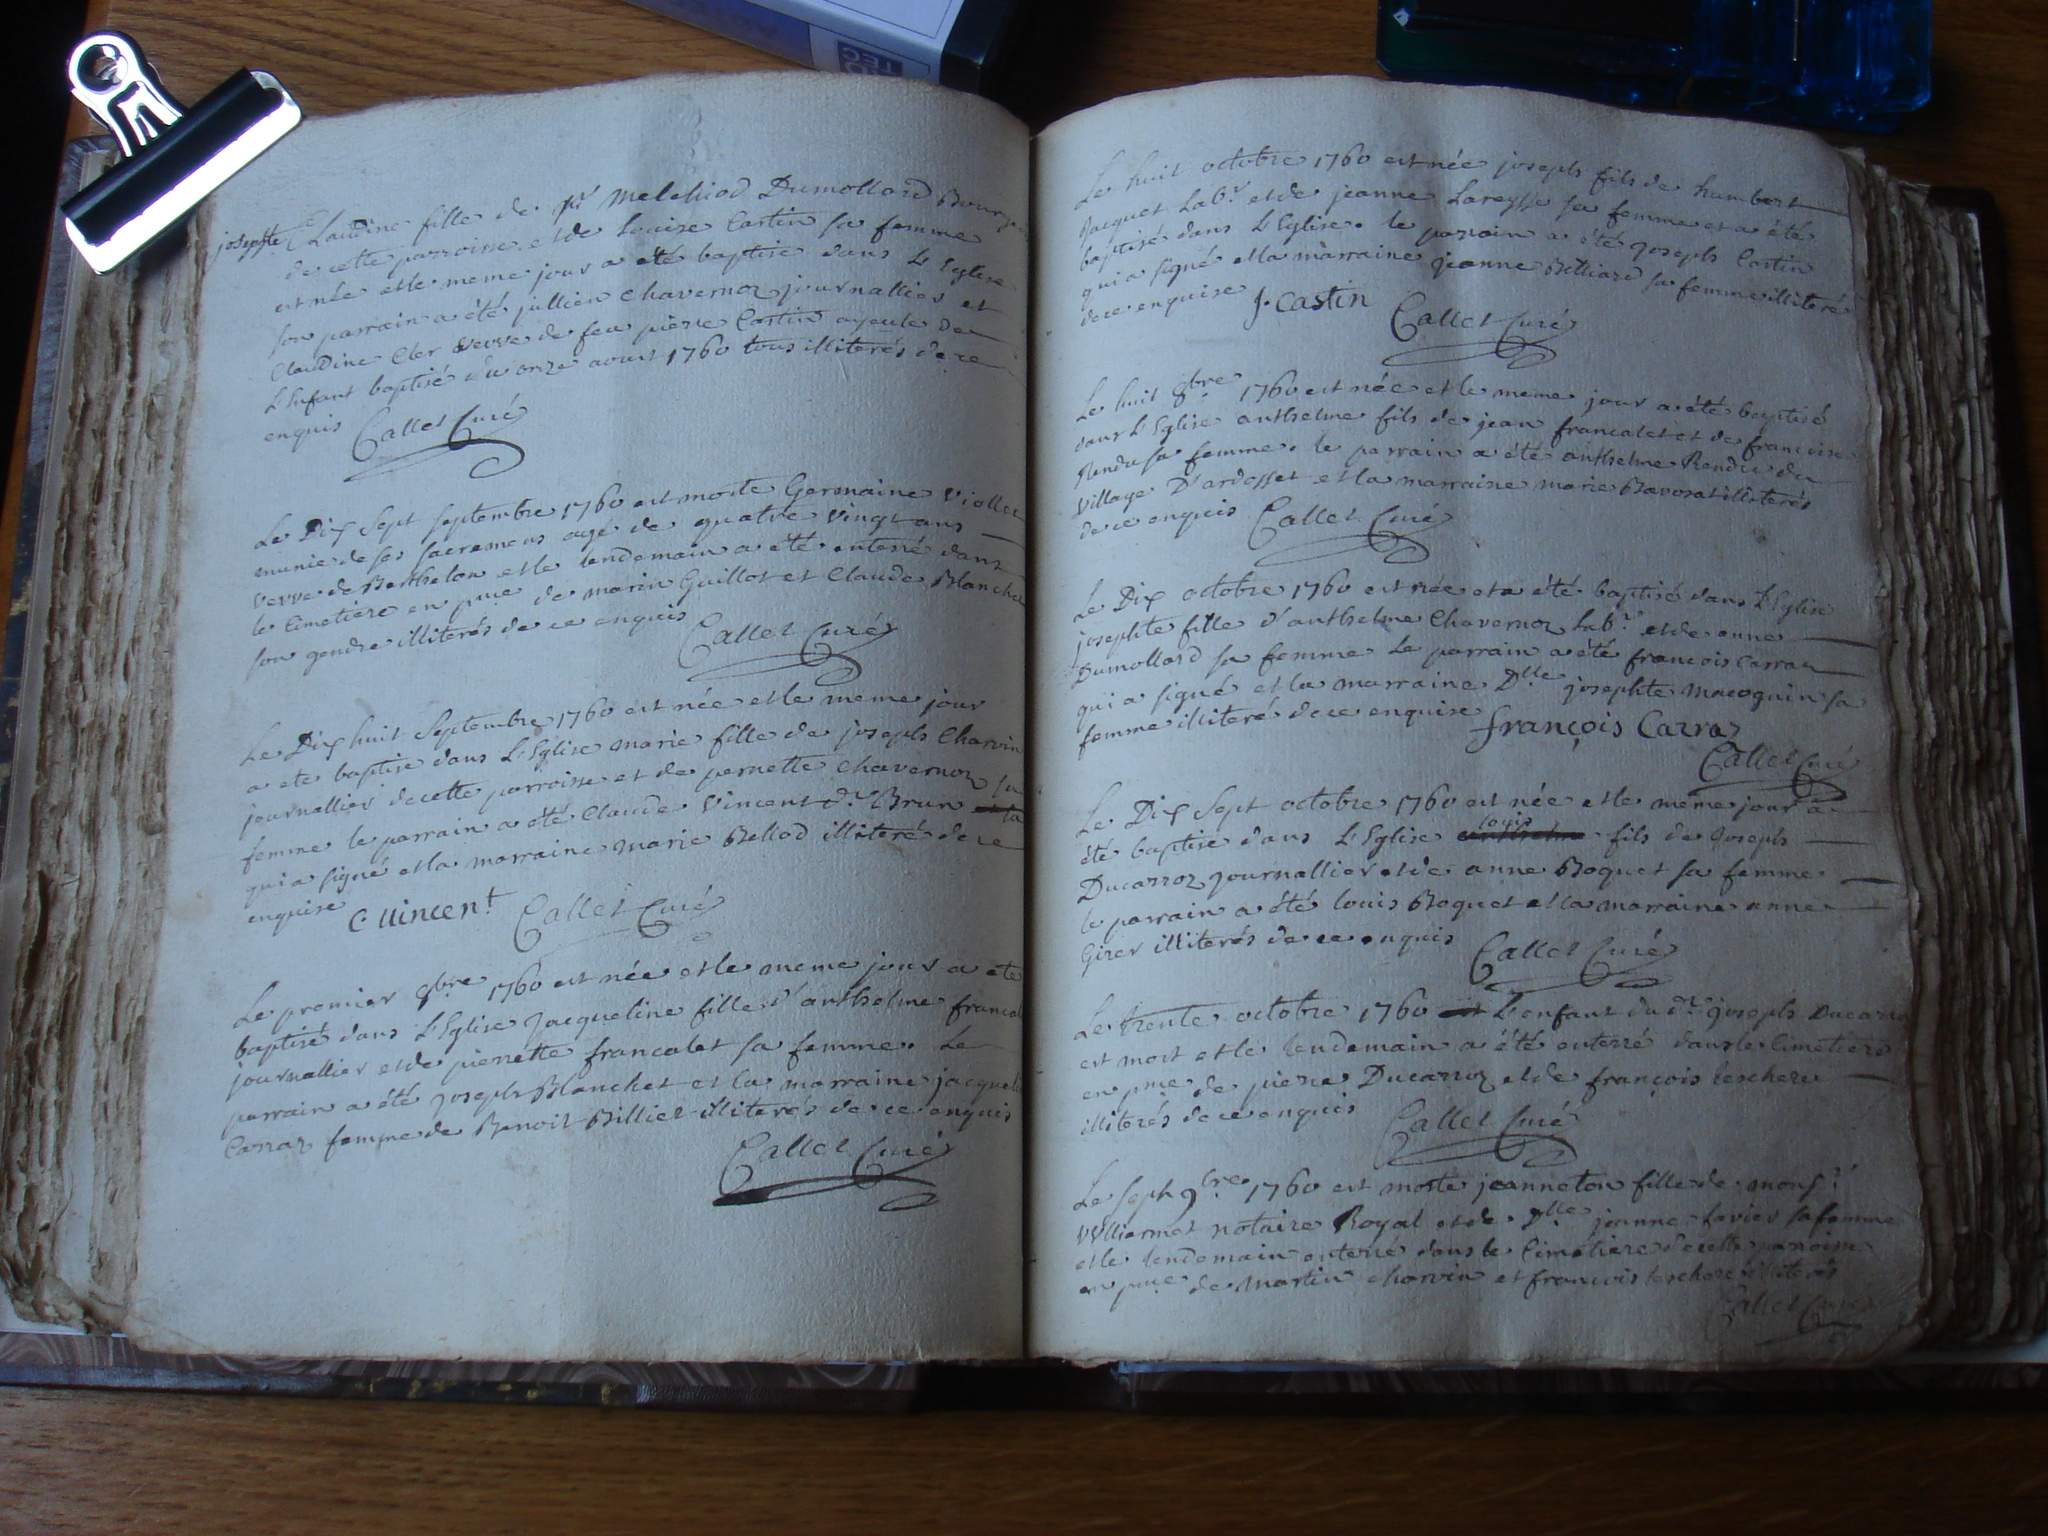 josephte Claudine fille de Sr Melchiod Dumollard Bourg
de cette parroisse et de Louise Castin sa femme
est née et le meme jour a eté baptisé dans L'Eglise
son parrain a été jullien Chavernoz journallier et
Claudine Cler vevve de feu pierre Castin ayeule de
L'Enfant baptisé du onze aoust 1760 tous illiterés de ce
enquis Callet Curé
Le Dix Sept Septembre 1760 est morte Germaine Viollet
munie de ses sacremens agé de quatre vingt ans
vevve de Berthelon et le lendemain a été enterré dans
le Cimetiere en pnce de marin Guillot et Claude Blanche
son gendre illiterés de ce enquis
Callet Curé
Le Dix huit Septembre 1760 est née et le meme jour
a ete baptise dans L'Eglise marie fille de joseph Charvin
journallier de cette parroisse et de pernette Chavernoz sa
femme le parrain a été Claude Vincent dt Brun et la
qui a signé et la marraine marie Belliod illiteré de ce
enquise C. Vincent Callet Curé
Le premier 8bre 1760 est née et le meme jour a ete
baptisé dans L'Eglise Jacqueline fille d'anthelme francal
journallier et de pierrette francalet sa femme. Le
parrain a été joseph Blanchet et la marraine jacquel
Carraz femme de Benoit Billiet illiterés de ce enquis
Callet Curé
Le huit octobre 1760 est née joseph fils de humbert
Jacquet Labr et de jeanne Lareysse sa femme et a été
baptisé dans L'Eglise. le parrain a été joseph Castin
qui a signé et la marraine jeanne Billiard sa femme illiteré
de ce enquise J. Castin Callet Curé
Le huit 8bre 1760 est née et le meme jour a été baptisé
dans L'Eglise anthelme fils de jean francalet et de francoise
Rendu sa femme. le parrain a été anthelme Rendu du
village D'ardosset et la marraine marie Bavorat illiterés
de ce enquis Callet Curé
Le Dix octobre 1760 est née et a été baptisé dans L'Eglise
josephte fille d'anthelme Chavernoz Labr et de anne
Dumollard sa femme Le parrain a été francois Carraz
qui a signé et la marraine Dlle josephte Macognin sa
femme illiteré de ce enquise françois Carraz
Callet Curé
Le Dix Sept octobre 1760 est née et le meme jour a
été baptise dans L'Eglise anthelme louis fils de Joseph
Ducarroz journallier et de anne Boquet sa femme
le parrain a été louis Boquet et la marraine anne
Girer illiterés de ce enquis Callet Curé
Le trente octobre 1760 est L'enfant du dt joseph Ducarro
est mort et le lendemain a été enterré dans le Cimetiere
en pnce de pierre Ducarroz et de françois leschere
illiterés de ce enquis Callet Curé
Le Sept 9bre 1760 est morte jeanneton fille de monsr
Vulliermet notaire Royal et de Dlle jeanne favier sa femme
et le lendemain enterré dans le Cimetiere de cette parroisse
en pnce de martin charvin et francois leschere illiterés
Callet Curé